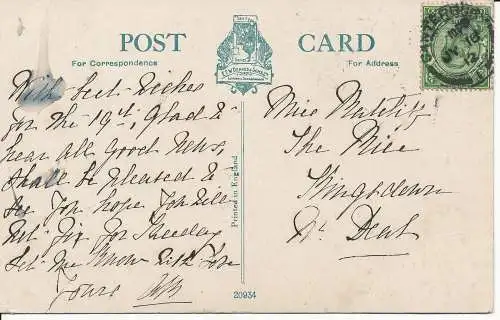 POST CARD
For Correspondence
For Address
With best wishes
for the 19th, Glad to
hear all Good News,
Shall be pleased to
see you hope you will
not for Tuesday
Let me know with love
Yours
Printed in England
Miss
The
Kingsdown
Nr Deal
CANTERBURY
12
20934